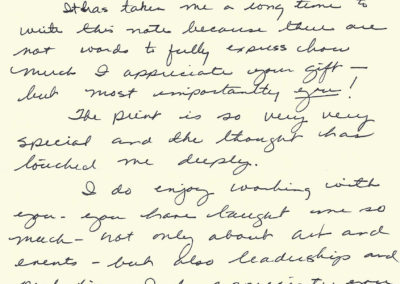 It has taken me a long time to
write this note because there are
not words to fully express how
much I appreciate your gift —
but most importantly you!
The print is so very very
special and the thought has
touched me deeply.
I do enjoy working with
you - you have taught me so
much - not only about art and
events - but also leadership and